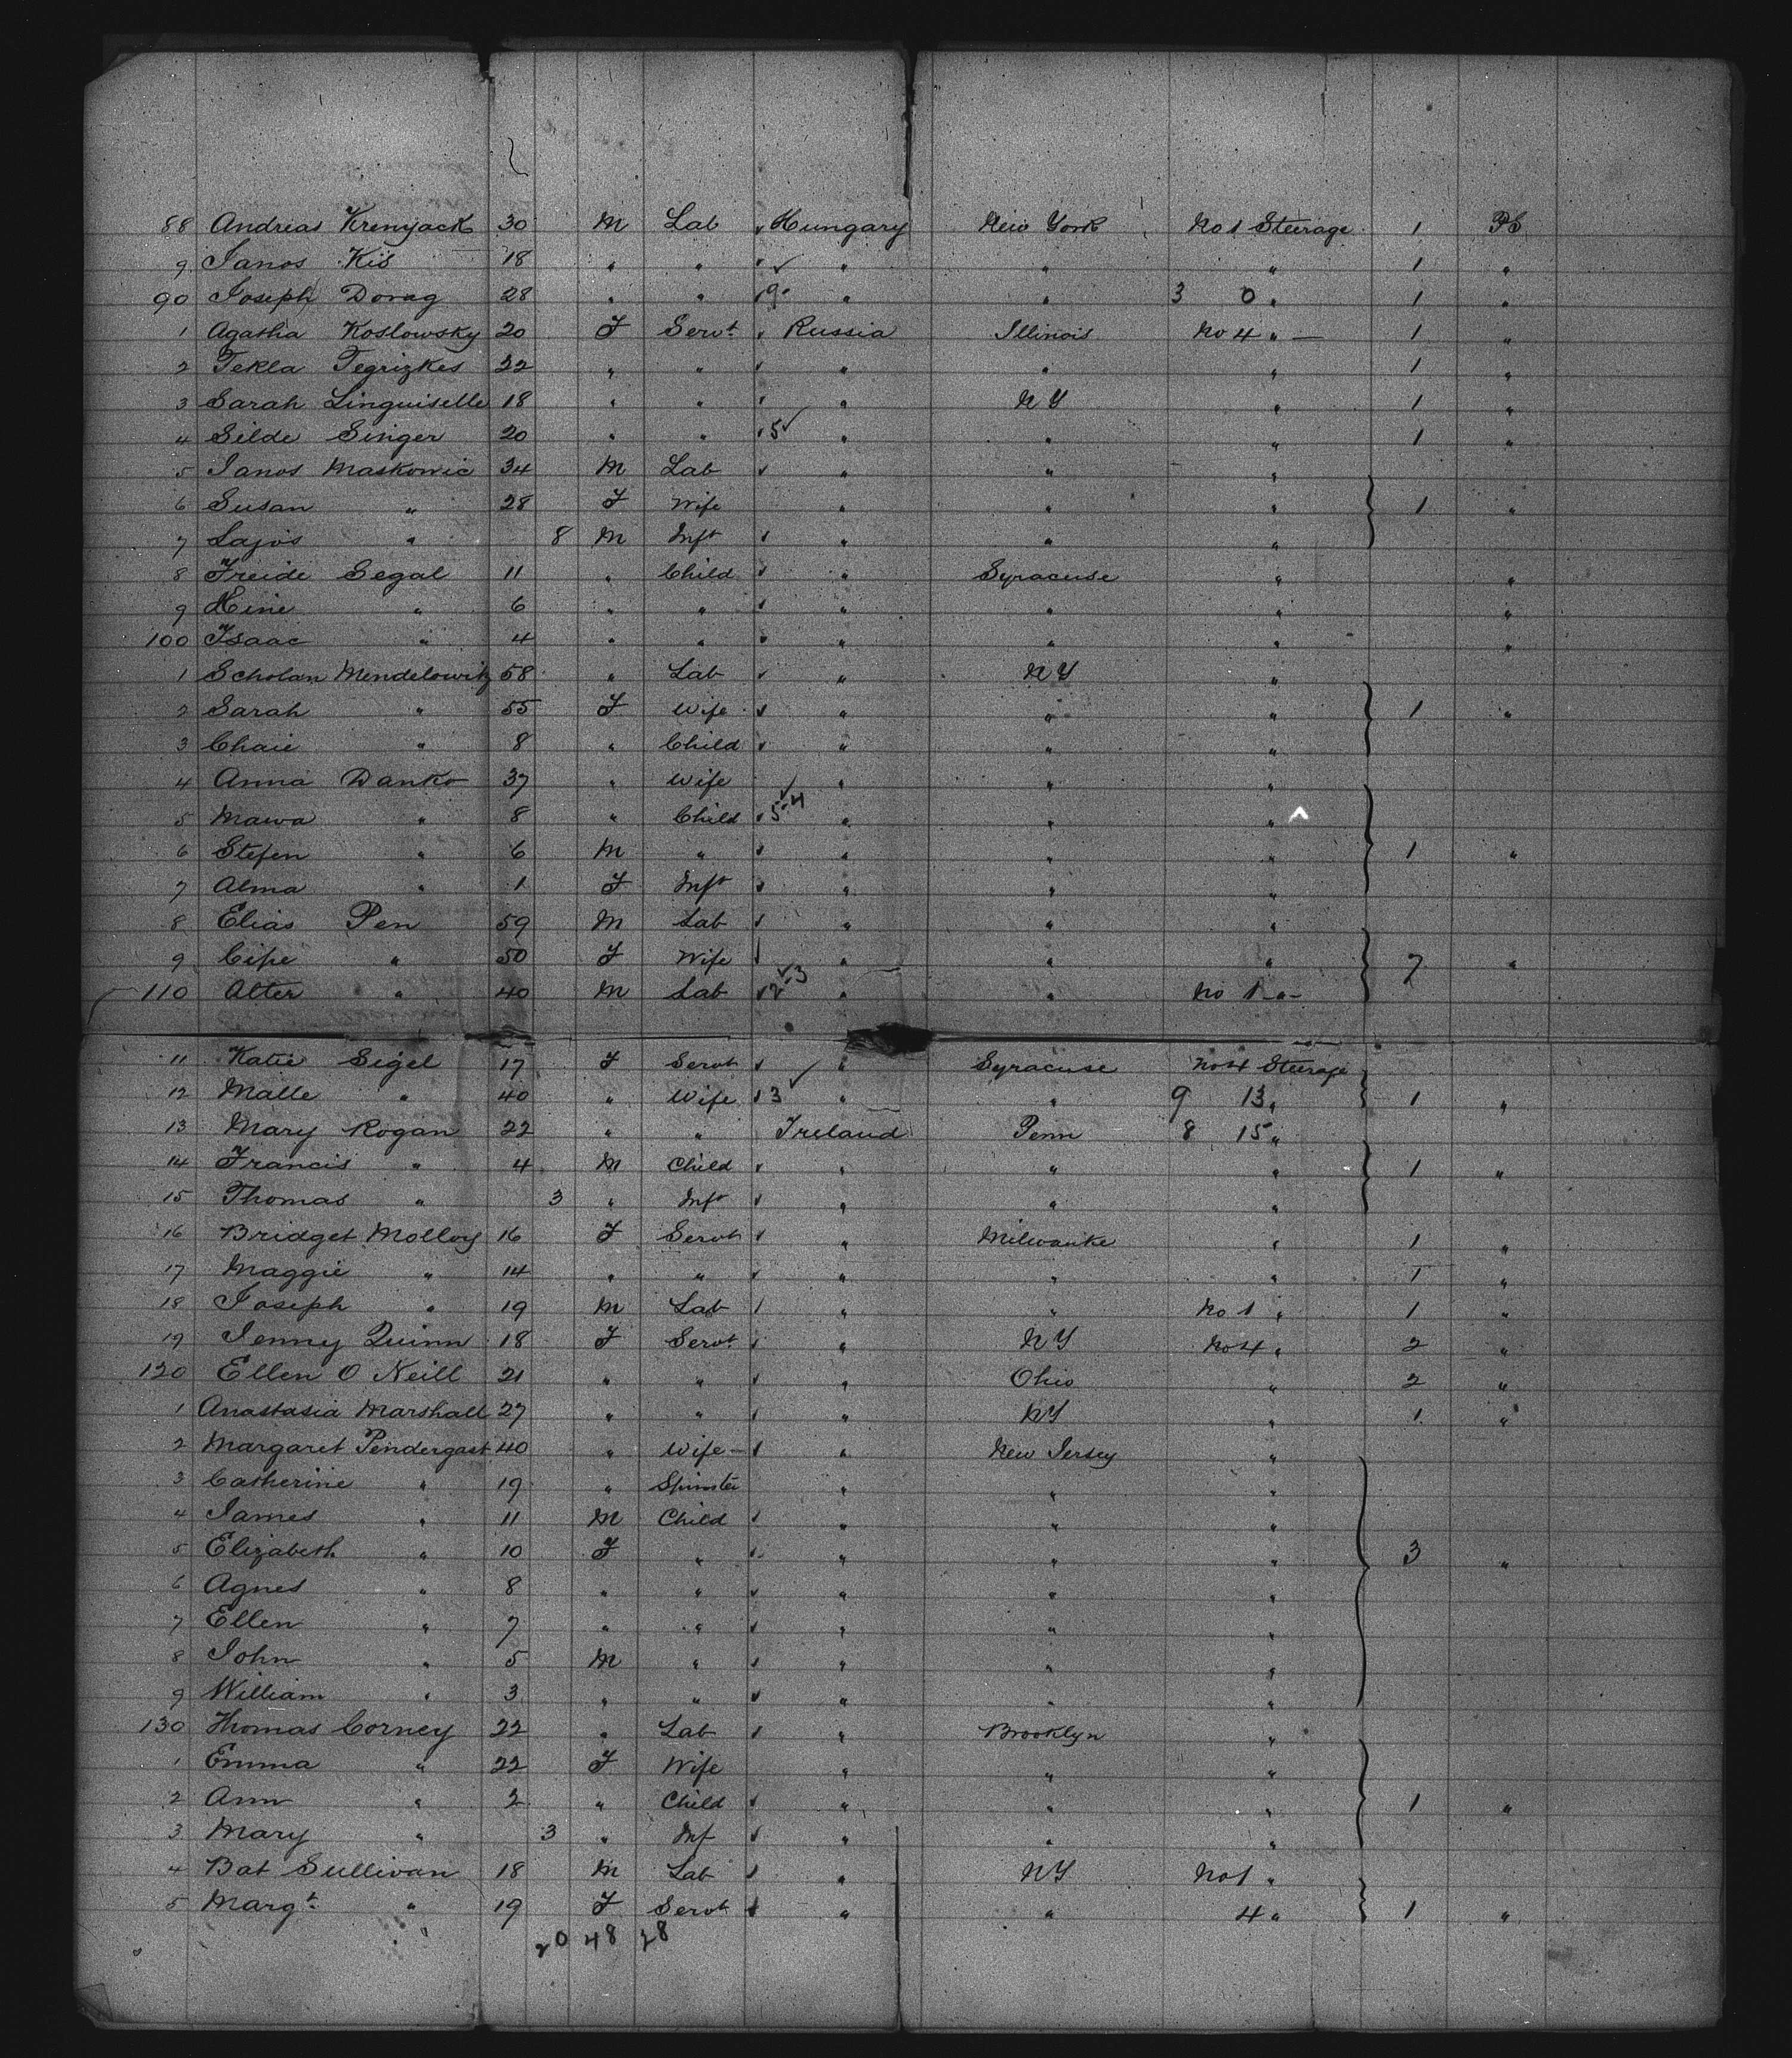 88 Andreas Krenyack 30 M Lab Hungary New York No 1 Steerage 1 PS
9 Janos Kis 18 " " " " " 1 "
90 Joseph Dorag 28 " " 9 " " 3 0 " 1 "
1 Agatha Koslowsky 20 F Servt Russia Illinois No 4 " 1 "
2 Tekla Tegrizkes 22 " " " " " 1 "
3 Sarah Linguiselle 18 " " " NY " 1 "
4 Silde Singer 20 " " 5 " " " 1 "
5 Janos Maskowic 34 M Lab " " "
6 Susan " 28 F Wife " " " 1 "
7 Lajos " 8 M Inft " " "
8 Freide Segal 11 " Child " Syracuse " "
9 Hine " 6 " " " " " "
100 Isaac " 4 " " " " " "
1 Scholan Mendelowitz 58 " Lab " NY "
2 Sarah " 55 F Wife " " " 1 "
3 Chaie " 8 " Child " " "
4 Anna Danko 37 " Wife " " "
5 Mawa " 8 " Child 5-4 " " "
6 Stefen " 6 M " " " " 1 "
7 Alma " 1 F Inft " " "
8 Elias Pen 59 M Lab " " "
9 Cipe " 50 F Wife " " " 7 "
110 Alter " 40 M Lab 2-3 " " No 1 "
11 Katie Sigel 17 F Servt " Syracuse No 4 Steerage
12 Malle " 40 " Wife 3 " " 9 13 " 1 "
13 Mary Rogan 22 " " Ireland Penn 8 15 "
14 Francis " 4 M Child " " " 1 "
15 Thomas " 3 " Inft " " "
16 Bridget Molloy 16 F Servt " Milwauke " 1 "
17 Maggie " 14 " " " " " 1 "
18 Joseph " 19 M Lab " " No 1 " 1 "
19 Jenny Quinn 18 F Servt " NY No 4 " 2 "
120 Ellen O Neill 21 " " " Ohio " 2 "
1 Anastasia Marshall 27 " " " NY " 1 "
2 Margaret Pendergast 40 " Wife " New Jersey "
3 Catherine " 19 " Spinster " " "
4 James " 11 M Child " " "
5 Elizabeth " 10 F " " " " 3 "
6 Agnes " 8 " " " " "
7 Ellen " 7 " " " " "
8 John " 5 M " " " "
9 William " 3 " " " " "
130 Thomas Corney 22 " Lab " Brooklyn "
1 Emma " 22 F Wife " " "
2 Ann " 2 " Child " " " 1 "
3 Mary " 3 " Inf " " "
4 Bat Sullivan 18 M Lab " NY No 1 "
5 Margt " 19 F Servt " " 4 " 1 "
20 48 28